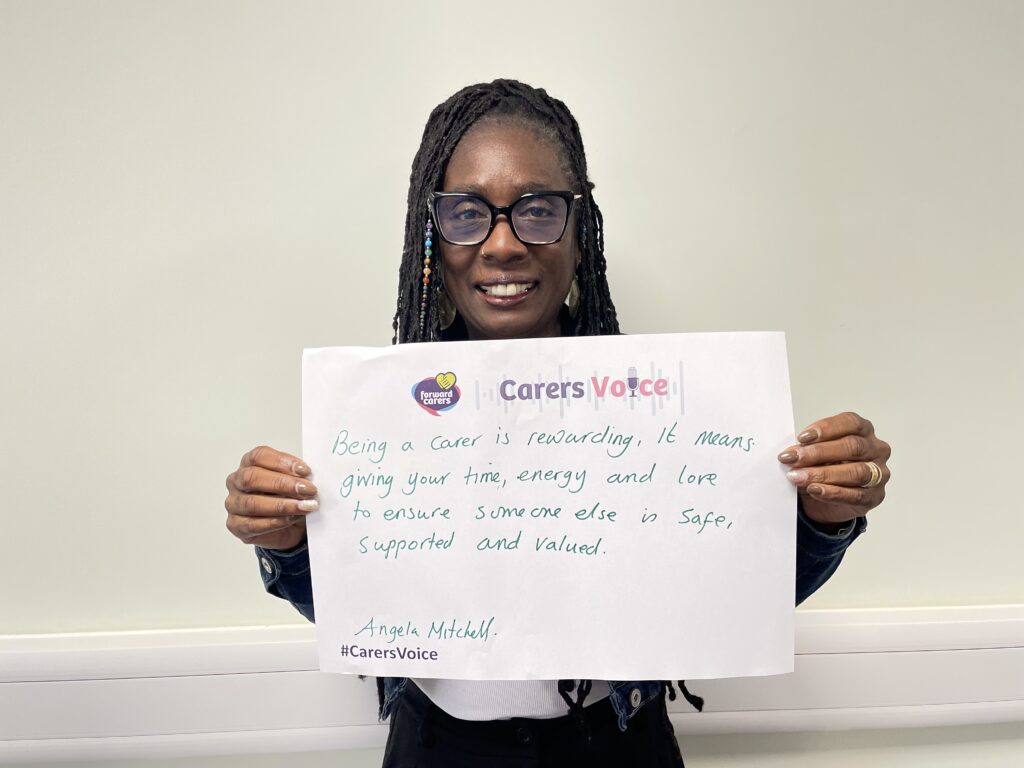 forward
carers
Carers Voice
Being a carer is rewarding, It means
giving your time, energy and love
to ensure someone else is safe,
supported and valued.
Angela Mitchell.
#CarersVoice